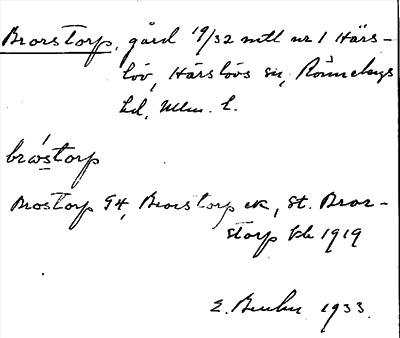 Brorstorp, gård 19/32 mtl nr 1 Härs-
löv, Härslövs sn, Rönnebergs
hd, Mlm. l.
brωstorp
Brostorp GK, Brorstorp ek, St. Bror-
storp kb 1919
E. 1933.